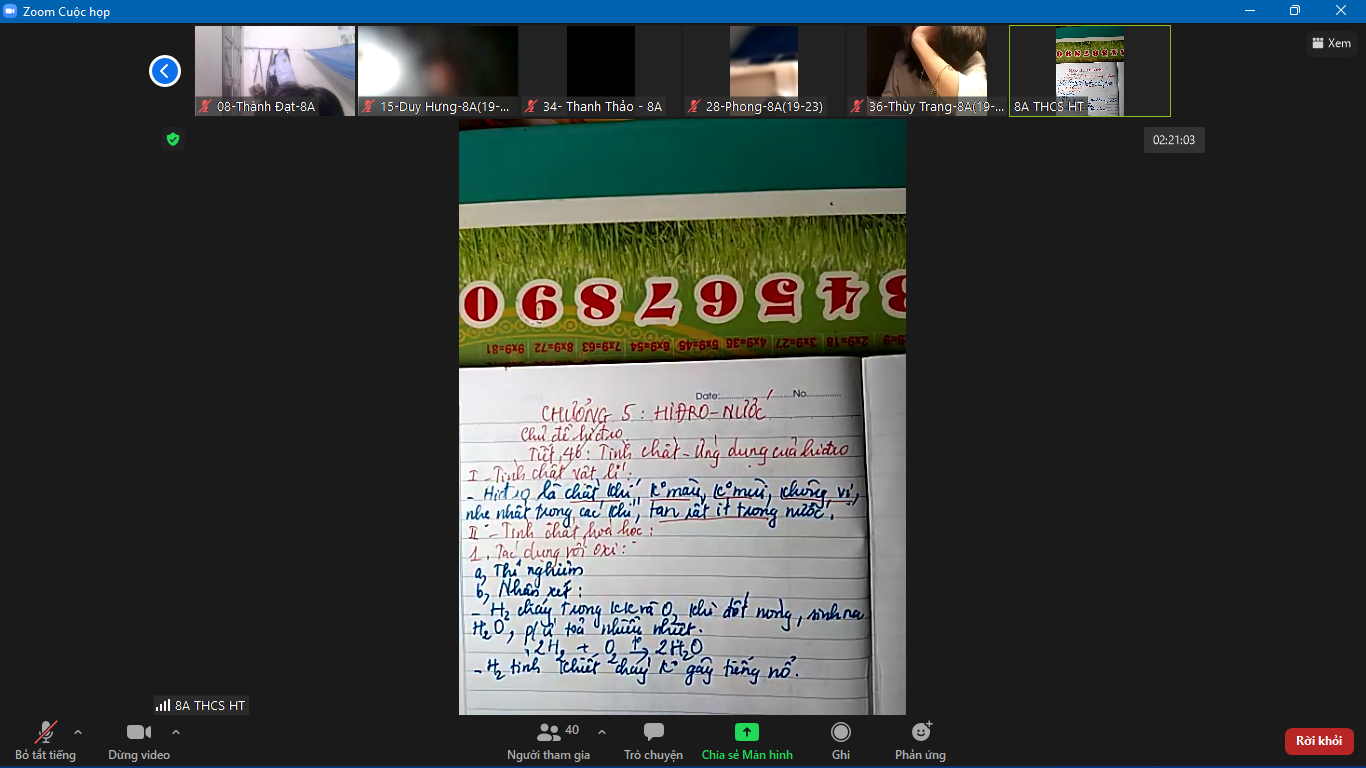 Zoom Cuộc họp
Xem
08-Thành Đạt-8A
15-Duy Hưng-8A(19-...
34- Thanh Thảo - 8A
28-Phong-8A(19-23)
36-Thùy Trang-8A(19-...
8A THCS HT
02:21:03
3 4 5 6 7 8 9 0
2x9=18 3x9=27 4x9=36 5x9=45 6x9=54 7x9=63 8x9=72 9x9=81
Date: No
CHƯƠNG 5 : HIĐRO - NƯỚC
Chủ đề hiđro
Tiết 46 : Tính chất - Ứng dụng của hiđro
I - Tính chất vật lí :
- Hiđro là chất khí, k° màu, k° mùi, không vị,
nhẹ nhất trong các khí, tan rất ít trong nước.
II - Tính chất hoá học :
1. Tác dụng với oxi :
a, Thí nghiệm
b, Nhận xét :
- H2 cháy trong kk và O2 khi đốt nóng, sinh ra
H2O, p/ứ toả nhiều nhiệt.
2H2 + O2 t° → 2H2O
- H2 tinh khiết cháy k° gây tiếng nổ.
8A THCS HT
Bỏ tắt tiếng
Dừng video
Người tham gia
40
Trò chuyện
Chia sẻ Màn hình
Ghi
Phản ứng
Rời khỏi